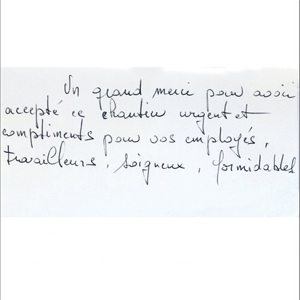 Un grand merci pour avoir
accepté ce chantier urgent et
compliments pour vos employés,
travailleurs, soigneux, formidables